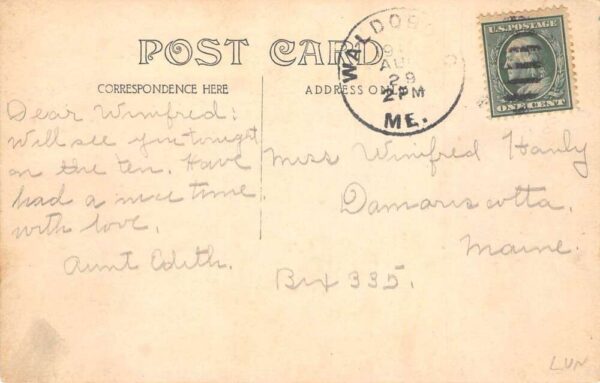 POST CARD
CORRESPONDENCE HERE
ADDRESS ONLY
WALDOBO
AU
29
2 PM
ME.
U.S. POSTAGE
ONE CENT
Dear Winifred:
Will see you tonight
on the ten. Have
had a nice time
with love.
Aunt Edith.
Miss Winifred Hanly
Damariscotta,
Maine.
Box 335.
LUN